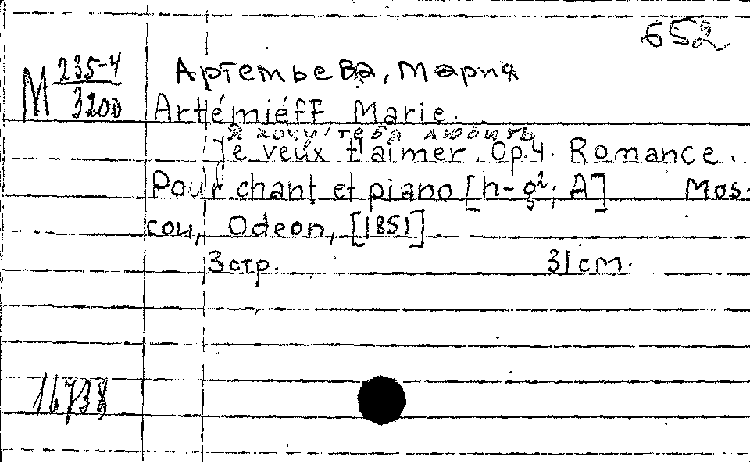 652
М 235-4/3200
Артемьева, Мария
Artémieff Marie.
Я хочу тебя любить
Je veux t'aimer. Op.4. Romance.
Pour chant et piano [h-g²; A] Mos-
cou, Odeon, [1851].
3 стр. 31 см.
16738